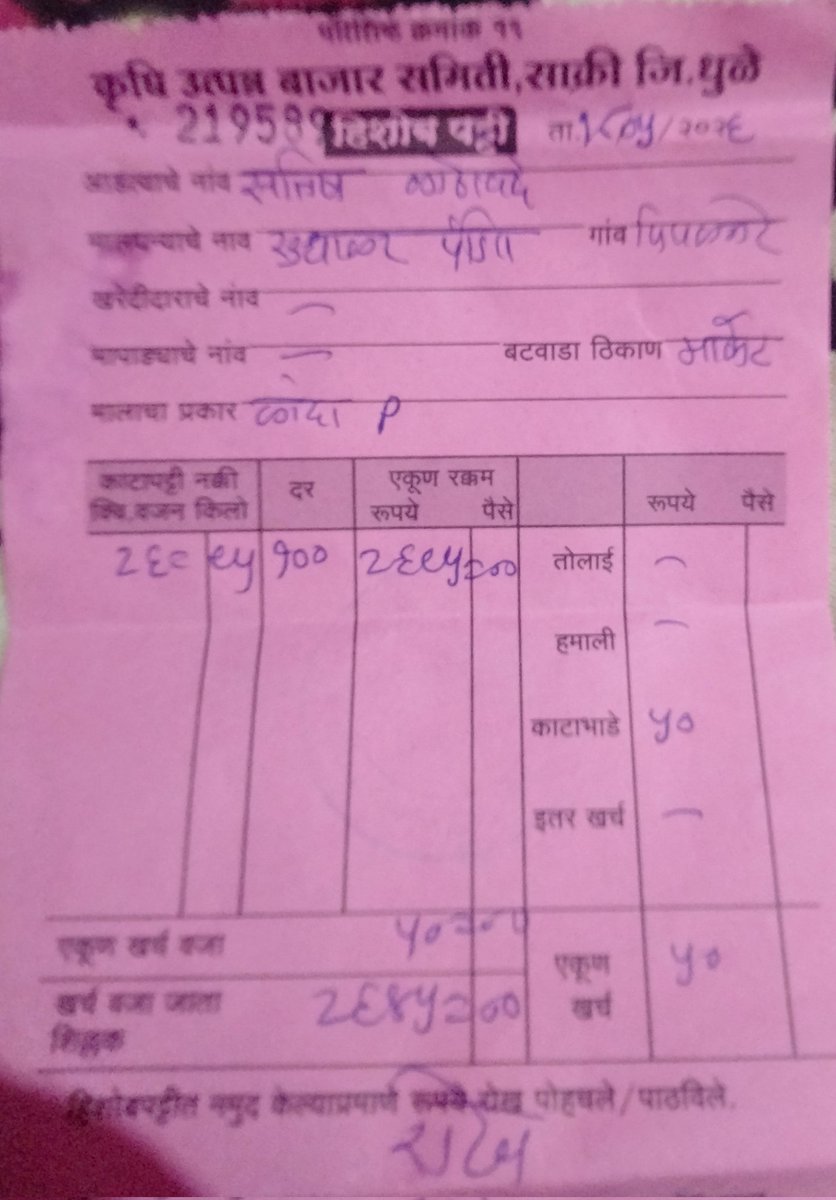 परिशिष्ट क्रमांक ११
कृषि उत्पन्न बाजार समिती, साक्री जि. धुळे
हिशोब पट्टी ता. /२०२६
आडत्याचे नांव
मालधन्याचे नाव गांव
खरेदीदाराचे नांव —
मापाड्याचे नांव — बटवाडा ठिकाण मार्केट
मालाचा प्रकार कांदा P
काटापट्टी नक्की दर एकूण रक्कम
क्विं. वजन किलो रूपये पैसे रूपये पैसे
२६ ९५ १०० २६९५=०० तोलाई —
हमाली —
काटाभाडे ५०
इतर खर्च —
एकूण खर्च वजा ५०=०० एकूण खर्च ५०
खर्च वजा जाता शिल्लक २६४५=००
हिशोबपट्टीत नमुद केल्याप्रमाणे रूपये रोख पोहचले/पाठविले.